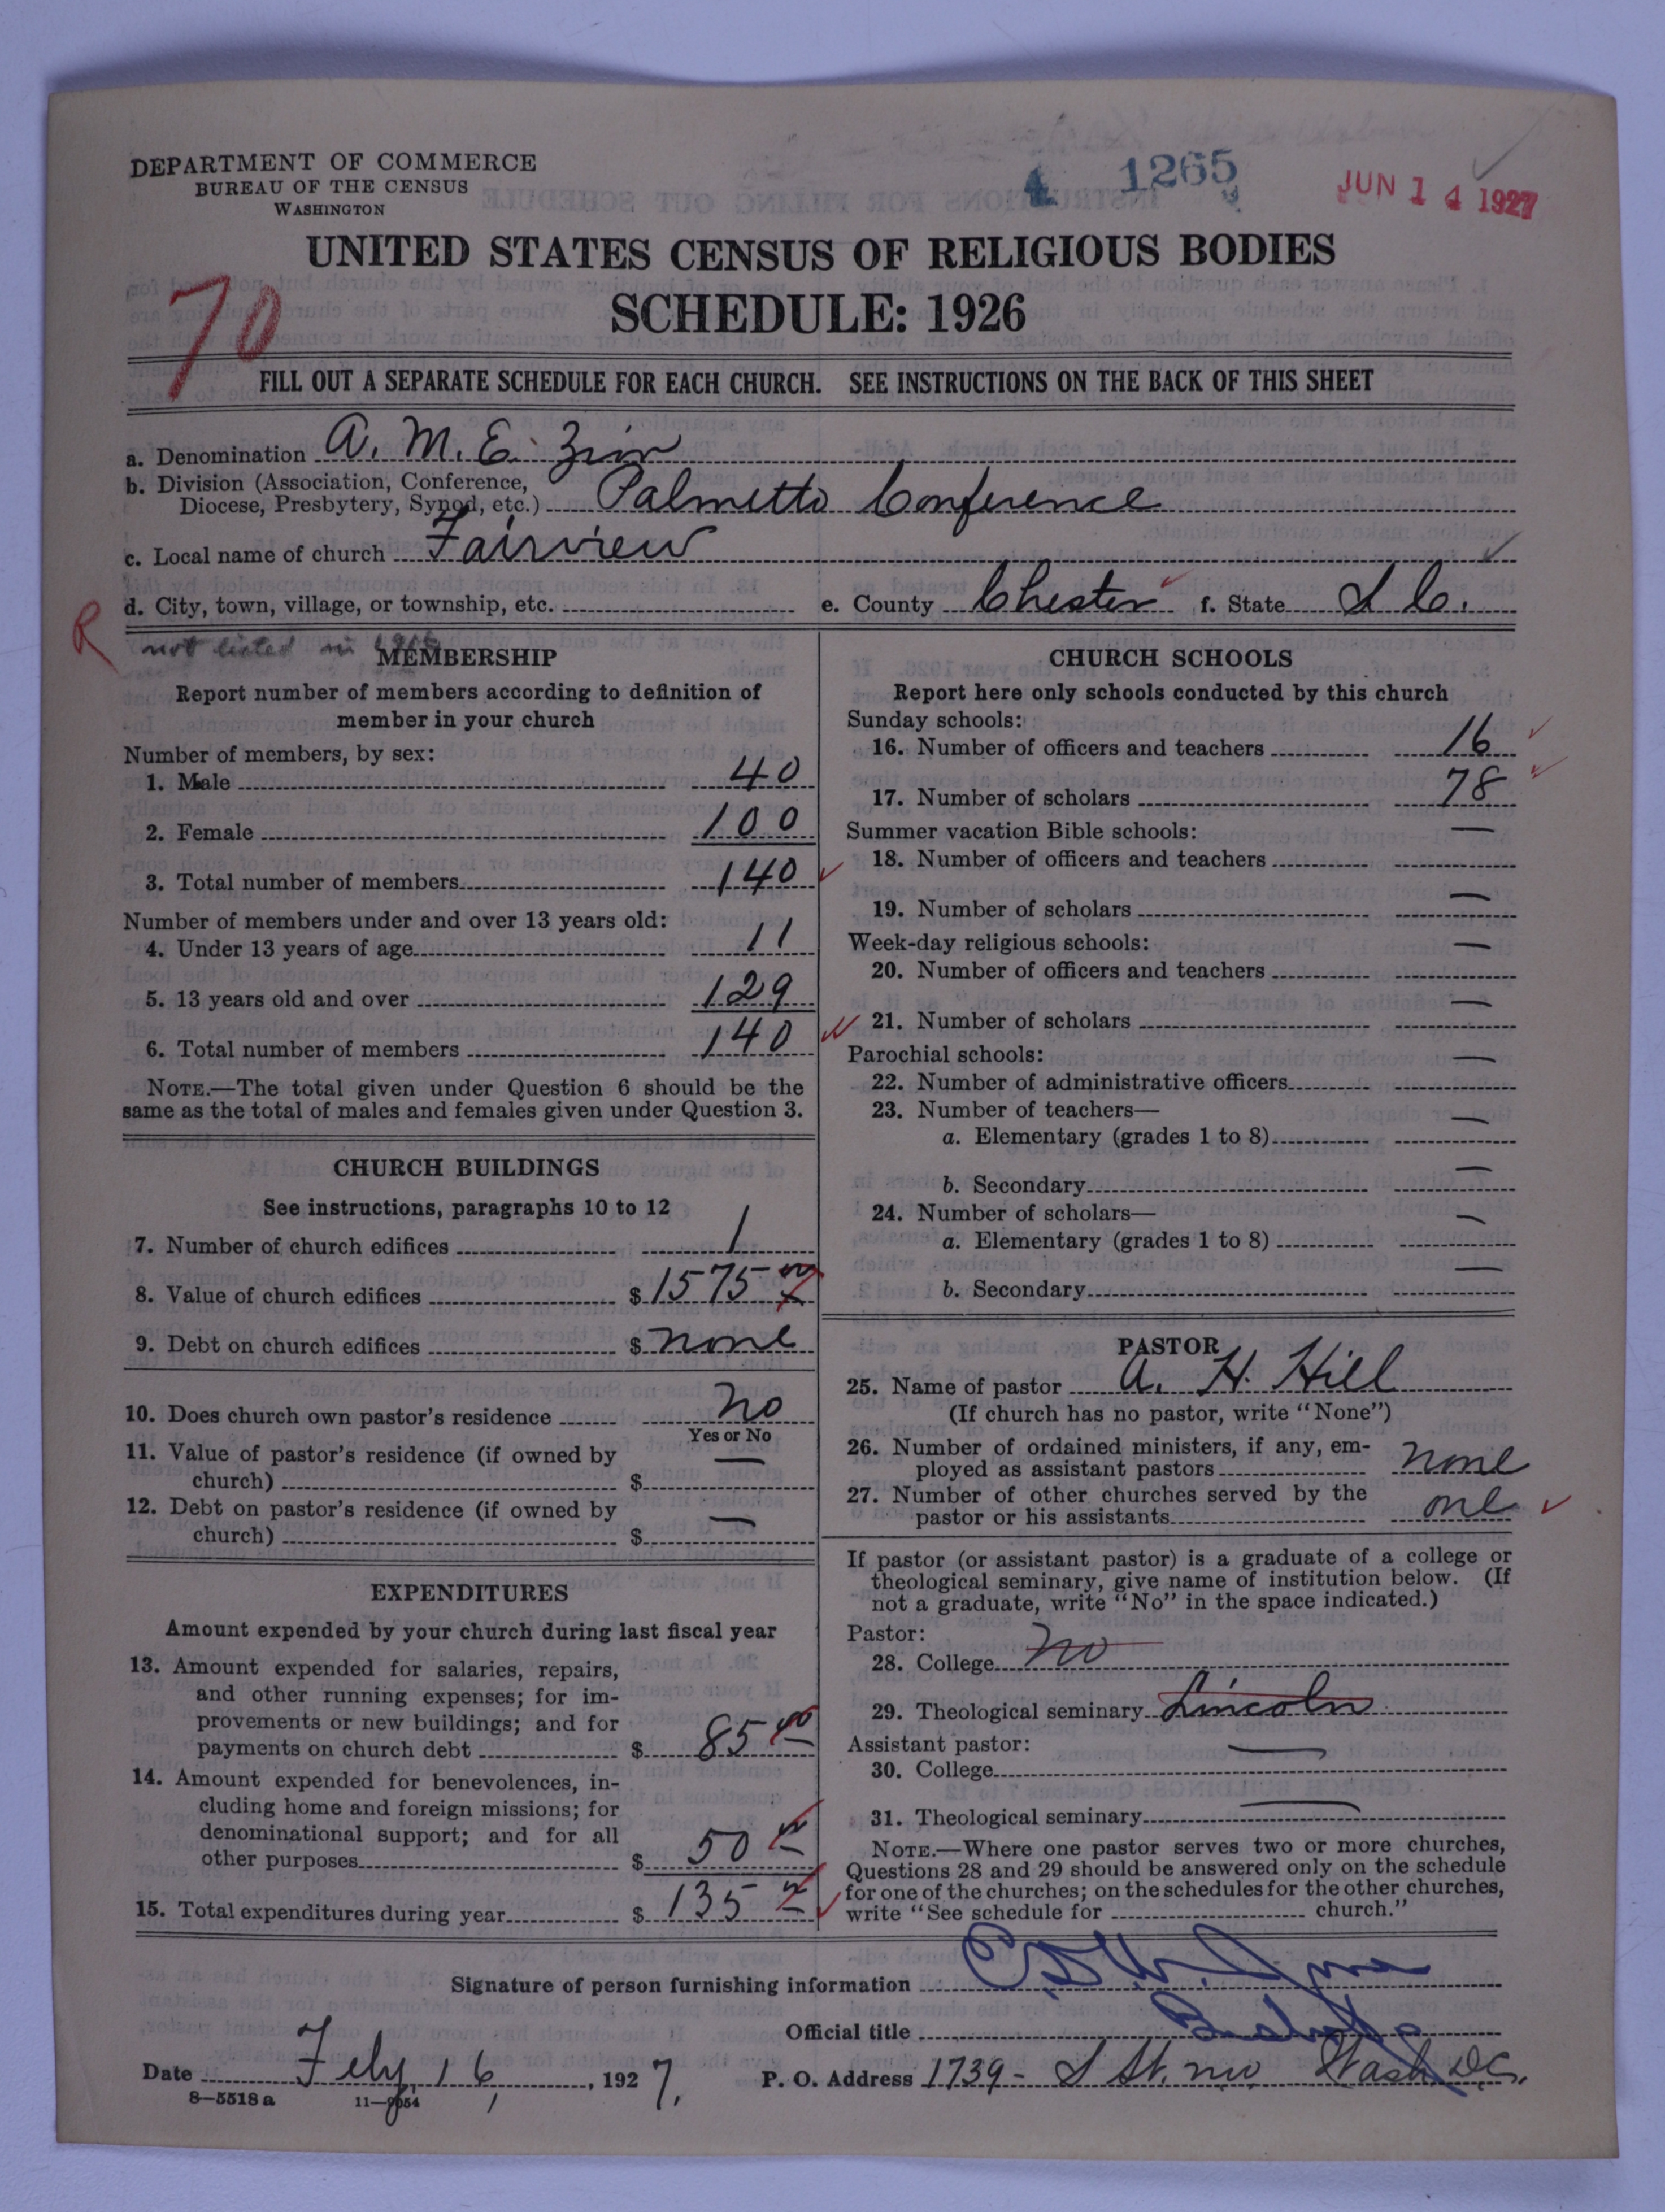 DEPARTMENT OF COMMERCE
BUREAU OF THE CENSUS
WASHINGTON
4 1265
JUN 14 1927
UNITED STATES CENSUS OF RELIGIOUS BODIES
SCHEDULE: 1926
70
FILL OUT A SEPARATE SCHEDULE FOR EACH CHURCH. SEE INSTRUCTIONS ON THE BACK OF THIS SHEET
a. Denomination A. M. E. Zion
b. Division (Association, Conference,
Diocese, Presbytery, Synod, etc.) Palmetto Conference
c. Local name of church Fairview
d. City, town, village, or township, etc. e. County Chester f. State S. C.
R
not listed in
MEMBERSHIP
Report number of members according to definition of
member in your church
Number of members, by sex:
1. Male 40
2. Female 100
3. Total number of members 140
Number of members under and over 13 years old:
4. Under 13 years of age 11
5. 13 years old and over 129
6. Total number of members 140
NOTE.—The total given under Question 6 should be the
same as the total of males and females given under Question 3.
CHURCH BUILDINGS
See instructions, paragraphs 10 to 12
7. Number of church edifices 1
8. Value of church edifices $ 1575 00
9. Debt on church edifices $ none
10. Does church own pastor's residence No
Yes or No
11. Value of pastor's residence (if owned by
church) $ —
12. Debt on pastor's residence (if owned by
church) $ —
EXPENDITURES
Amount expended by your church during last fiscal year
13. Amount expended for salaries, repairs,
and other running expenses; for im-
provements or new buildings; and for
payments on church debt $ 85 00
14. Amount expended for benevolences, in-
cluding home and foreign missions; for
denominational support; and for all
other purposes $ 50 00
15. Total expenditures during year $ 135 00
CHURCH SCHOOLS
Report here only schools conducted by this church
Sunday schools:
16. Number of officers and teachers 16
17. Number of scholars 78
Summer vacation Bible schools:
18. Number of officers and teachers —
19. Number of scholars —
Week-day religious schools:
20. Number of officers and teachers —
21. Number of scholars —
Parochial schools:
22. Number of administrative officers —
23. Number of teachers—
a. Elementary (grades 1 to 8) —
b. Secondary —
24. Number of scholars—
a. Elementary (grades 1 to 8) —
b. Secondary —
PASTOR
25. Name of pastor A. H. Hill
(If church has no pastor, write "None")
26. Number of ordained ministers, if any, em-
ployed as assistant pastors none
27. Number of other churches served by the
pastor or his assistants one
If pastor (or assistant pastor) is a graduate of a college or
theological seminary, give name of institution below. (If
not a graduate, write "No" in the space indicated.)
Pastor:
28. College No
29. Theological seminary Lincoln
Assistant pastor:
30. College —
31. Theological seminary —
NOTE.—Where one pastor serves two or more churches,
Questions 28 and 29 should be answered only on the schedule
for one of the churches; on the schedules for the other churches,
write "See schedule for church."
Signature of person furnishing information
Official title Bishop
Date Feby 16, 1927. P. O. Address 1739 - S St. nw Wash D.C.
8—5518 a 11—9054